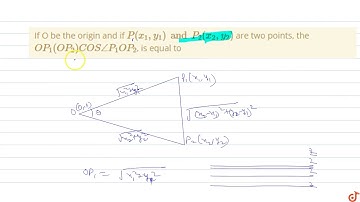 If O be the origin and if P₁(x₁, y₁) and P₂(x₂, y₂) are two points, the
OP₁(OP₂)COS∠P₁OP₂, is equal to
P₁(x₁,y₁)
√x₁²+y₁²
O(0,0)
θ
√(x₂-x₁)²+(y₂-y₁)²
√x₂²+y₂²
P₂(x₂,y₂)
OP₁ = √x₁²+y₁²